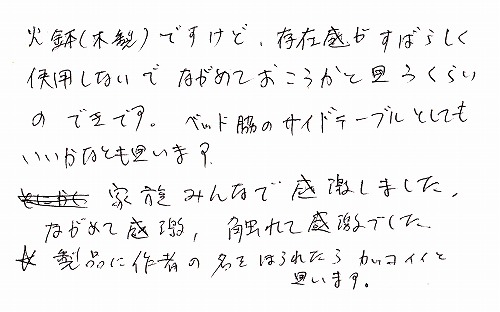 火鉢(木製)ですけど、存在感がすばらしく
使用しないで ながめておこうかと思うくらい
の できです。 ベッド脇のサイドテーブルとしても
いいかなとも思います。
家族みんなで感激しました。
ながめて感激、触れて感激でした。
☆ 製品に作者の名をほられたらカッコイイと
思います。